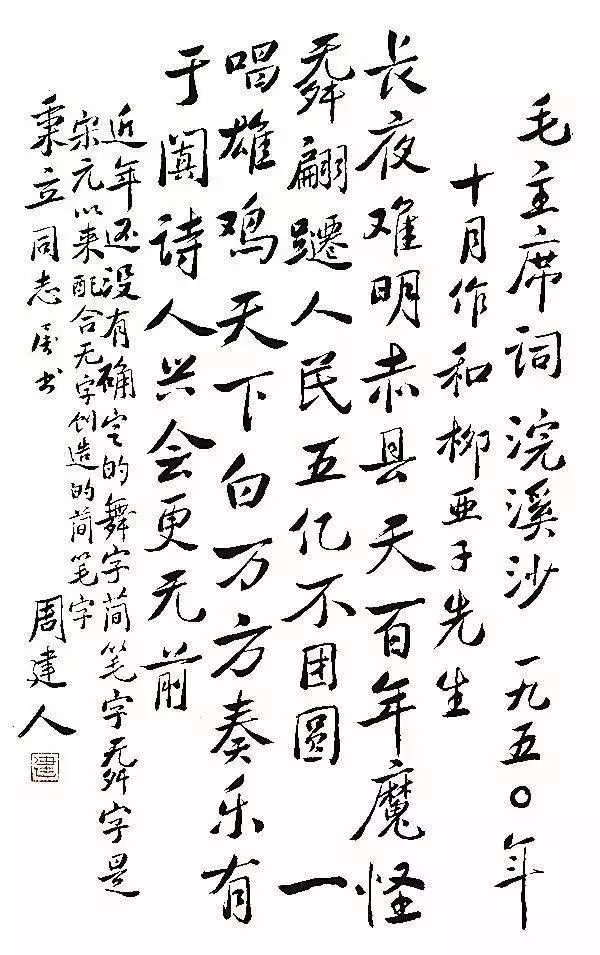 毛主席词 浣溪沙 一九五〇年
十月作和柳亚子先生
长夜难明赤县天百年魔怪
⿱无舛翩躚人民五亿不团圆 一
唱雄鸡天下白万方奏乐有
于阗诗人兴会更无前
近年还没有确定的舞字简笔字⿱无舛字是
宋元以来配合无字创造的简笔字
秉立同志属书 周建人